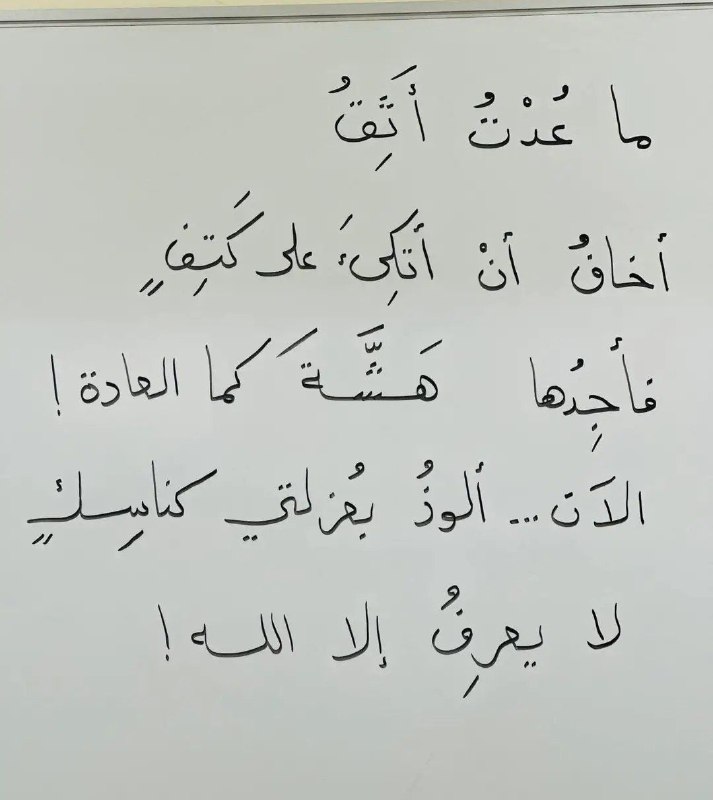 ما عُدْتُ أَثَقِقُ
أخافُ أنْ أتَكِئَ على كَتِفٍ
فأجِدُها هَشَّةَ كما العادة!
الآن... ألوذُ بعُزلتي كناسِكٍ
لا يعرِفُ إلا الله!